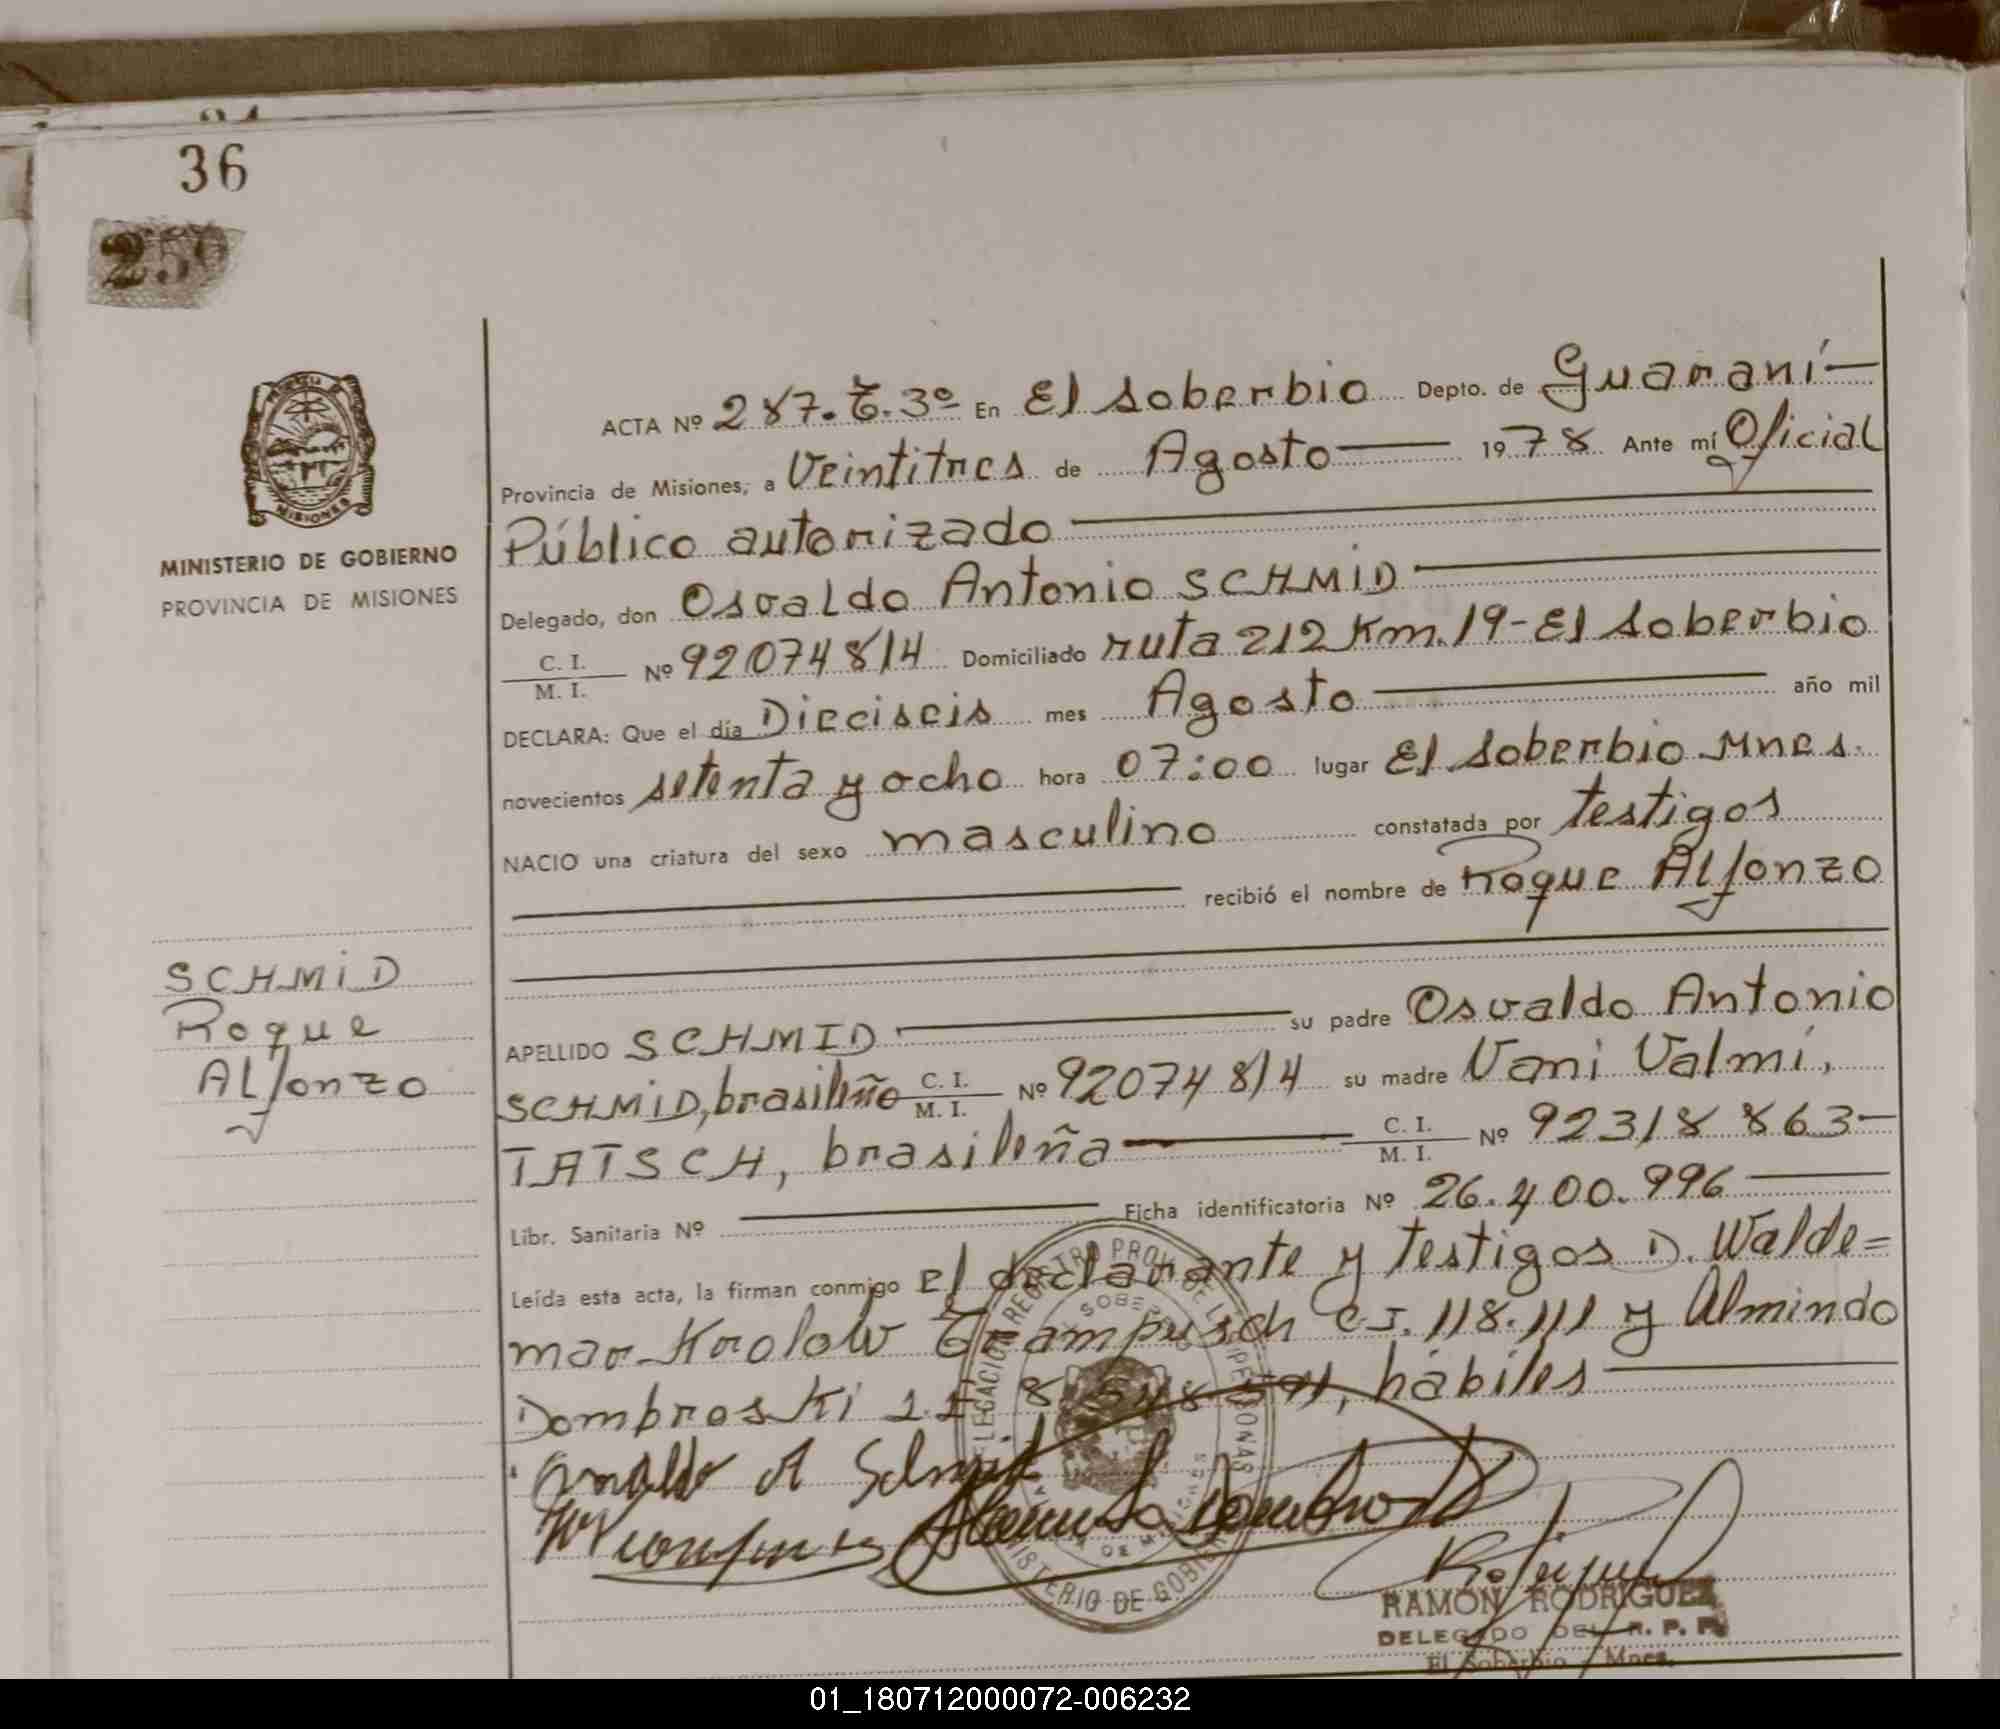 36
250
MINISTERIO DE GOBIERNO
PROVINCIA DE MISIONES
MISIONES
ACTA Nº 287. T. 3º En El Soberbio Depto. de Guaraní
Provincia de Misiones, a Veintitres de Agosto 1978 Ante mí Oficial
Público autorizado
Delegado, don Osvaldo Antonio SCHMID
C. I. / M. I. Nº 92074814 Domiciliado ruta 212 Km. 19 - El Soberbio
DECLARA: Que el día Dieciseis mes Agosto año mil
novecientos setenta y ocho hora 07:00 lugar El Soberbio Mnes.
NACIO una criatura del sexo masculino constatada por testigos
recibió el nombre de Roque Alfonzo
SCHMID
Roque
Alfonzo
APELLIDO SCHMID su padre Osvaldo Antonio
SCHMID, brasileño C. I. / M. I. Nº 92074814 su madre Vani Valmi,
TATSCH, brasileña C. I. / M. I. Nº 92318863
Libr. Sanitaria Nº Ficha identificatoria Nº 26.400.996
Leída esta acta, la firman conmigo el declarante y testigos D. Walde=
mar Krolow Trampusch C.I. 118.111 y Almindo
Dombroski hábiles
MINISTERIO DE GOBIERNO
RAMON RODRIGUEZ
DELEGADO DEL R. P. P.
El Soberbio - Mnes.
01_180712000072-006232